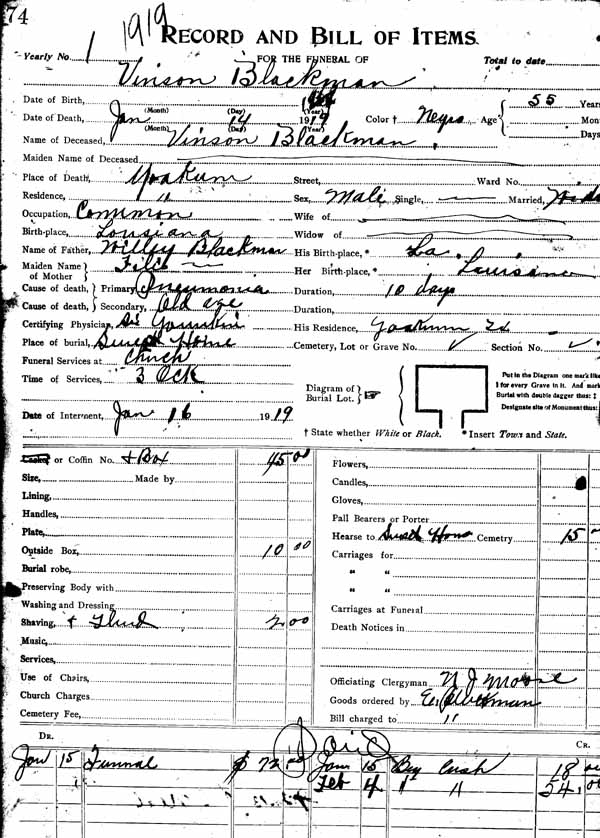 74
1919
RECORD AND BILL OF ITEMS
Yearly No. 1 FOR THE FUNERAL OF Total to date
Vinson Blackman
Date of Birth, (Month) (Day) (Year) 55 Years
Date of Death, Jan 14 1919 Color † Negro Age Mon
(Month) (Day) (Year) Days
Name of Deceased, Vinson Blackman
Maiden Name of Deceased
Place of Death, Yoakum Street, Ward No.
Residence, " Sex, Male Single, Married,
Occupation, Common Wife of
Birth-place, Lousiana Widow of
Name of Father, Willey Blackman His Birth-place, * La.
Maiden Name of Mother Her Birth-place, * Louisana
Cause of death, Primary Pneumonia Duration, 10 days
Cause of death, Secondary, Old age Duration,
Certifying Physician, Dr His Residence, Yoakum
Place of burial, Home Cemetery, Lot or Grave No. ✓ Section No. ✓
Funeral Services at Church
Time of Services, 3 Ock
Date of Interment, Jan 16 1919
Diagram of Burial Lot.
Put in the Diagram one mark like
‡ for every Grave in it. And mark
Burial with double dagger thus: ‡
Designate site of Monument thus:
† State whether White or Black. * Insert Town and State.
Casket or Coffin No. + Box 45 00
Size, Made by
Lining,
Handles,
Plate,
Outside Box, 10 00
Burial robe,
Preserving Body with
Washing and Dressing
Shaving, + Fluid 2.00
Music,
Services,
Use of Chairs,
Church Charges
Cemetery Fee,
Flowers,
Candles,
Gloves,
Pall Bearers or Porter
Hearse to Home Cemetry 15
Carriages for
" "
" "
Carriages at Funeral
Death Notices in
Officiating Clergyman N J Moore
Goods ordered by E. Blackman
Bill charged to "
DR. CR.
Jan 15 Funral $ 72.00 Jan 15 By Cash 18 00
Feb 4 " " 54.00